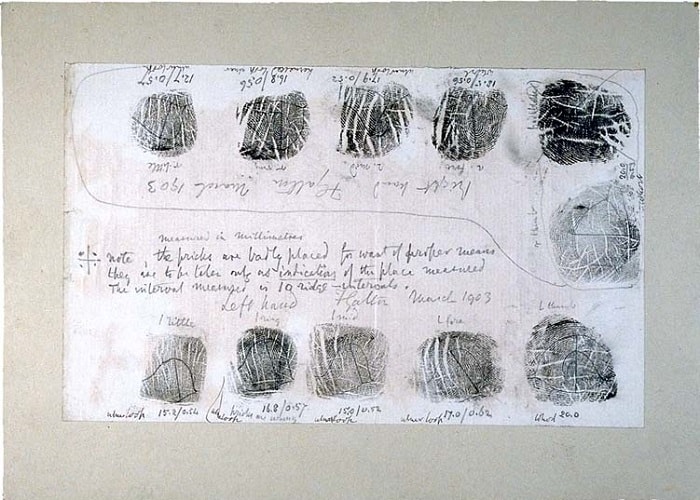 12.7/0.57
16.8/0.56
17.9/0.52
18.5/0.56
r little
r ring
r fore
Right hand FGalton March 1903
r thumb
measured in millimetres
note, the pricks are badly placed for want of proper means
they are to be taken only as indications of the place measured
The interval measured is 10 ridge-intervals.
Left hand FGalton March 1903
l little
l ring
l mid
l fore
L thumb
ulnar loop 15.2/0.54
pricks are wrong
loop
16.8/0.57
ulnar loop
15.0/0.52
ulnar loop 17.0/0.62
Whorl 20.0